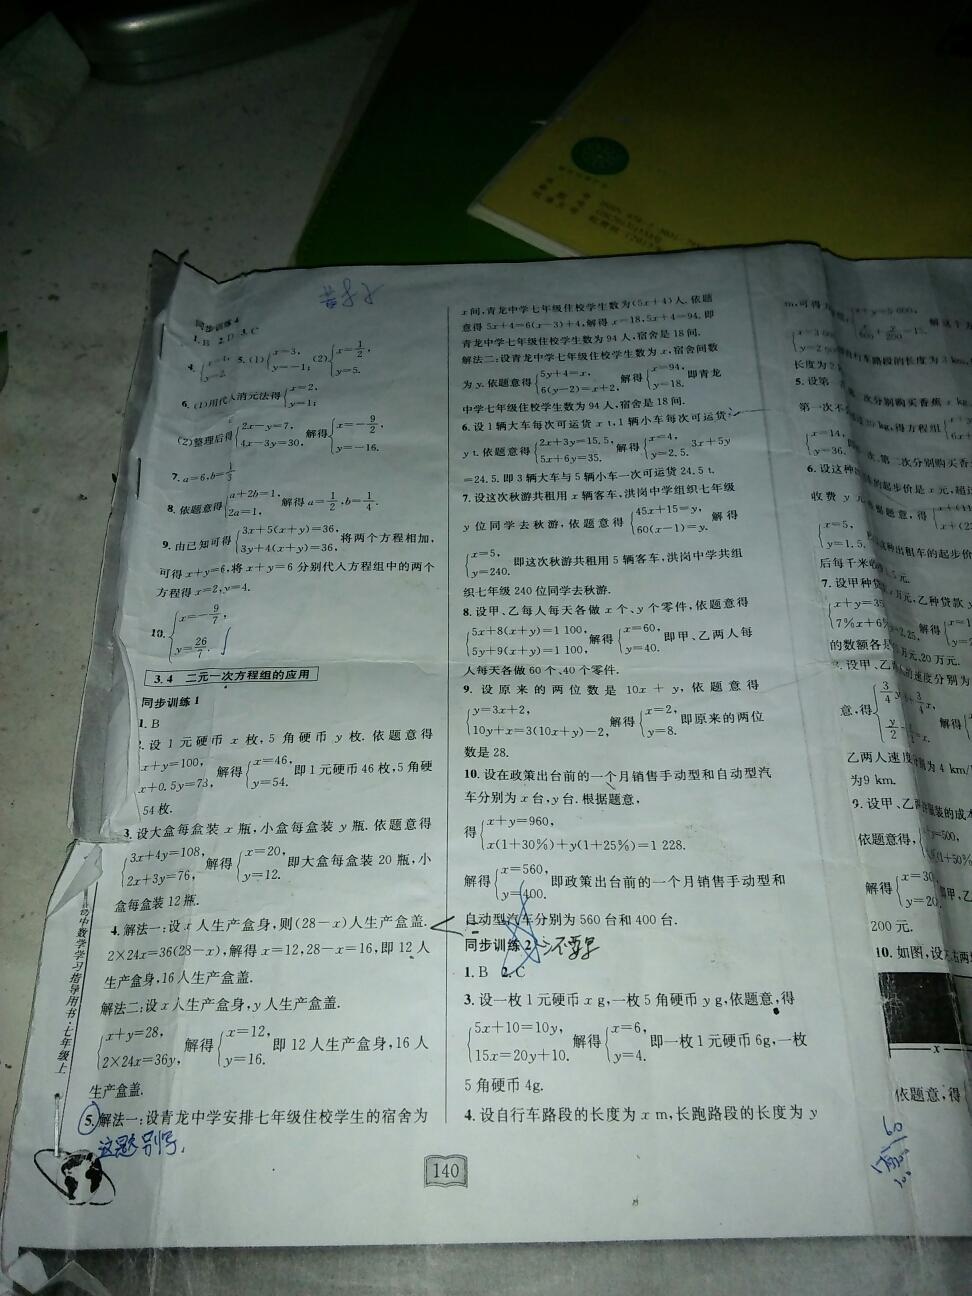 同步训练4
1. B 2. D 3. C
5. (1){x=3, y=-1; (2){x=1/2, y=5.
6. (1)用代入消元法得{x=2, y=1;
(2)整理后得{2x-y=7, 4x-3y=30, 解得{x=-9/2, y=-16.
7. a=6, b=1/3
8. 依题意得{a+2b=1, 2a=1, 解得 a=1/2, b=1/4.
9. 由已知可得{3x+5(x+y)=36, 3y+4(x+y)=36, 将两个方程相加,
可得 x+y=6,将 x+y=6 分别代入方程组中的两个
方程得 x=2,y=4.
10. {x=-9/7, y=26/7.
3.4 二元一次方程组的应用
同步训练1
1. B
设 1 元硬币 x 枚,5 角硬币 y 枚. 依题意得
{x+y=100, x+0.5y=73, 解得{x=46, y=54. 即 1 元硬币 46 枚,5 角硬
54 枚.
3. 设大盒每盒装 x 瓶,小盒每盒装 y 瓶. 依题意得
{3x+4y=108, 2x+3y=76, 解得{x=20, y=12. 即大盒每盒装 20 瓶,小
盒每盒装 12 瓶.
4. 解法一:设 x 人生产盒身,则(28-x)人生产盒盖.
2×24x=36(28-x),解得 x=12,28-x=16,即 12 人
生产盒身,16 人生产盒盖.
解法二:设 x 人生产盒身,y 人生产盒盖.
{x+y=28, 2×24x=36y, 解得{x=12, y=16. 即 12 人生产盒身,16 人
生产盒盖.
5. 解法一:设青龙中学安排七年级住校学生的宿舍为
这题别写.
初中数学学习指导用书·七年级上
x 间,青龙中学七年级住校学生数为(5x+4)人. 依题
意得 5x+4=6(x-3)+4,解得 x=18,5x+4=94. 即
青龙中学七年级住校学生数为 94 人,宿舍是 18 间.
解法二:设青龙中学七年级住校学生数为 x,宿舍间数
为 y. 依题意得{5y+4=x, 6(y-2)=x+2, 解得{x=94, y=18. 即青龙
中学七年级住校学生数为 94 人,宿舍是 18 间.
6. 设 1 辆大车每次可运货 x t,1 辆小车每次可运货
y t. 依题意得{2x+3y=15.5, 5x+6y=35. 解得{x=4, y=2.5. 3x+5y
=24.5. 即 3 辆大车与 5 辆小车一次可运货 24.5 t.
7. 设这次秋游共租用 x 辆客车,洪岗中学组织七年级
y 位同学去秋游,依题意得{45x+15=y, 60(x-1)=y. 解得
{x=5, y=240. 即这次秋游共租用 5 辆客车,洪岗中学共组
织七年级 240 位同学去秋游.
8. 设甲、乙每人每天各做 x 个、y 个零件,依题意得
{5x+8(x+y)=1 100, 5y+9(x+y)=1 100. 解得{x=60, y=40. 即甲、乙两人每
人每天各做 60 个、40 个零件.
9. 设原来的两位数是 10x+y,依题意得
{y=3x+2, 10y+x=3(10x+y)-2, 解得{x=2, y=8. 即原来的两位
数是 28.
10. 设在政策出台前的一个月销售手动型和自动型汽
车分别为 x 台,y 台. 根据题意,
得{x+y=960, x(1+30%)+y(1+25%)=1 228.
解得{x=560, y=400. 即政策出台前的一个月销售手动型和
自动型汽车分别为 560 台和 400 台.
同步训练2 不要写
1. B 2. C
3. 设一枚 1 元硬币 x g,一枚 5 角硬币 y g,依题意,得
{5x+10=10y, 15x=20y+10. 解得{x=6, y=4. 即一枚 1 元硬币 6g,一枚
5 角硬币 4g.
4. 设自行车路段的长度为 x m,长跑路段的长度为 y
140
长度为
5. 设第
次分别购买香蕉
第一次不
kg,得方程组
{x=14, y=36.
6. 设这种
的起步价是 x 元,超过
收费 y 元
据题意,得
{x=5, y=1.5.
种出租车的起步价
后每千米
7. 设甲种贷
万元,乙种贷款 y
{x+y=35
解得
的数额各是
万元、20 万元.
设甲、乙
的速度分别为
意,得
解得
乙两人速度
为 4 km/
为 9 km.
9. 设甲、乙
服装的成本
依题意得,
解得
200 元.
10. 如图,设
x
依题意,得